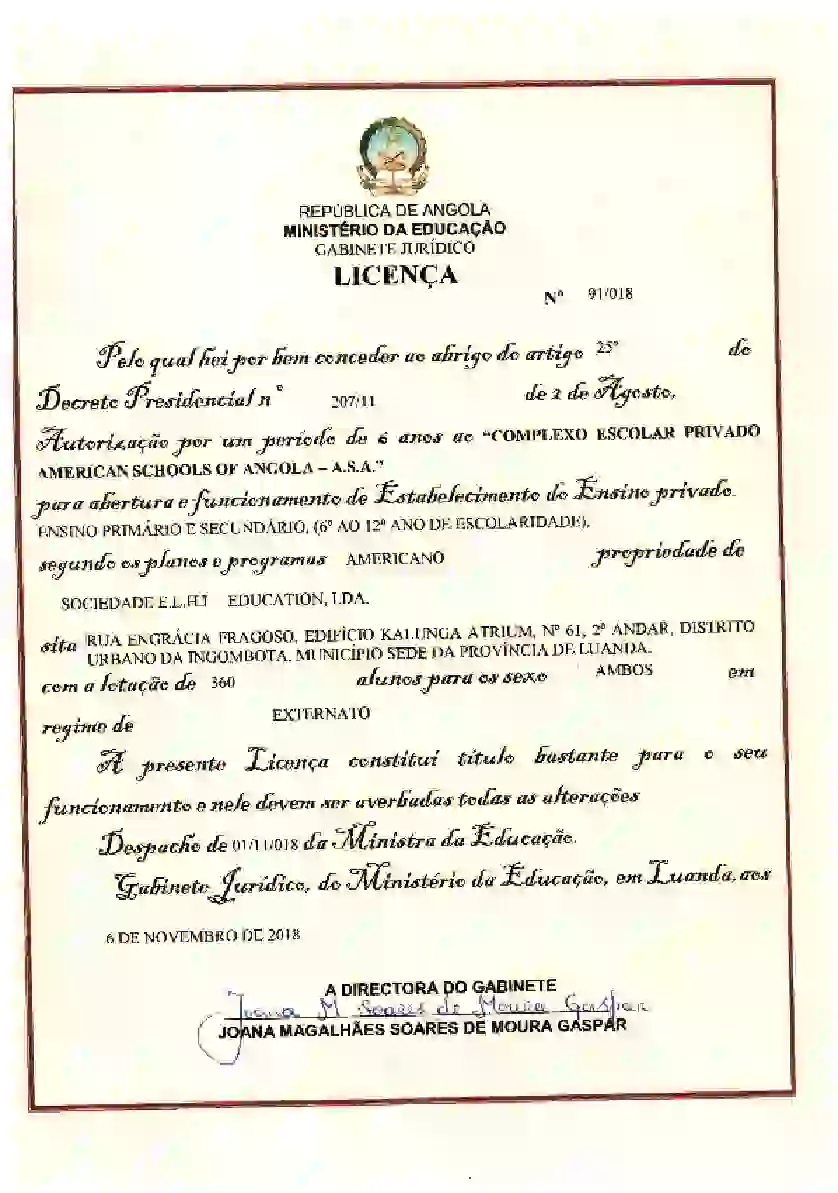 REPÚBLICA DE ANGOLA
MINISTÉRIO DA EDUCAÇÃO
GABINETE JURÍDICO
LICENÇA
Nº 91/018
Pelo qual hei por bem conceder ao abrigo do artigo 25º do
Decreto Presidencial nº 207/11 de 2 de Agosto,
Autorização por um período de 6 anos ao "COMPLEXO ESCOLAR PRIVADO
AMERICAN SCHOOLS OF ANGOLA – A.S.A."
para abertura e funcionamento de Estabelecimento do Ensino privado.
ENSINO PRIMÁRIO E SECUNDÁRIO, (6º AO 12º ANO DE ESCOLARIDADE),
segundo os planos e programas AMERICANO propriedade de
SOCIEDADE EDUCATION, LDA.
sita RUA ENGRÁCIA FRAGOSO, EDIFÍCIO KALUNGA ATRIUM, Nº 61, 2º ANDAR, DISTRITO
URBANO DA INGOMBOTA, MUNICÍPIO SEDE DA PROVÍNCIA DE LUANDA.
com a lotação de 360 alunos para os sexo AMBOS em
regime de EXTERNATO
A presente Licença constitui título bastante para o seu
funcionamento e nele devem ser averbadas todas as alterações
Despacho de 01/11/018 da Ministra da Educação.
Gabinete Jurídico, do Ministério da Educação, em Luanda, aos
6 DE NOVEMBRO DE 2018
A DIRECTORA DO GABINETE
Joana M Soares de Moura Gaspar
JOANA MAGALHÃES SOARES DE MOURA GASPAR